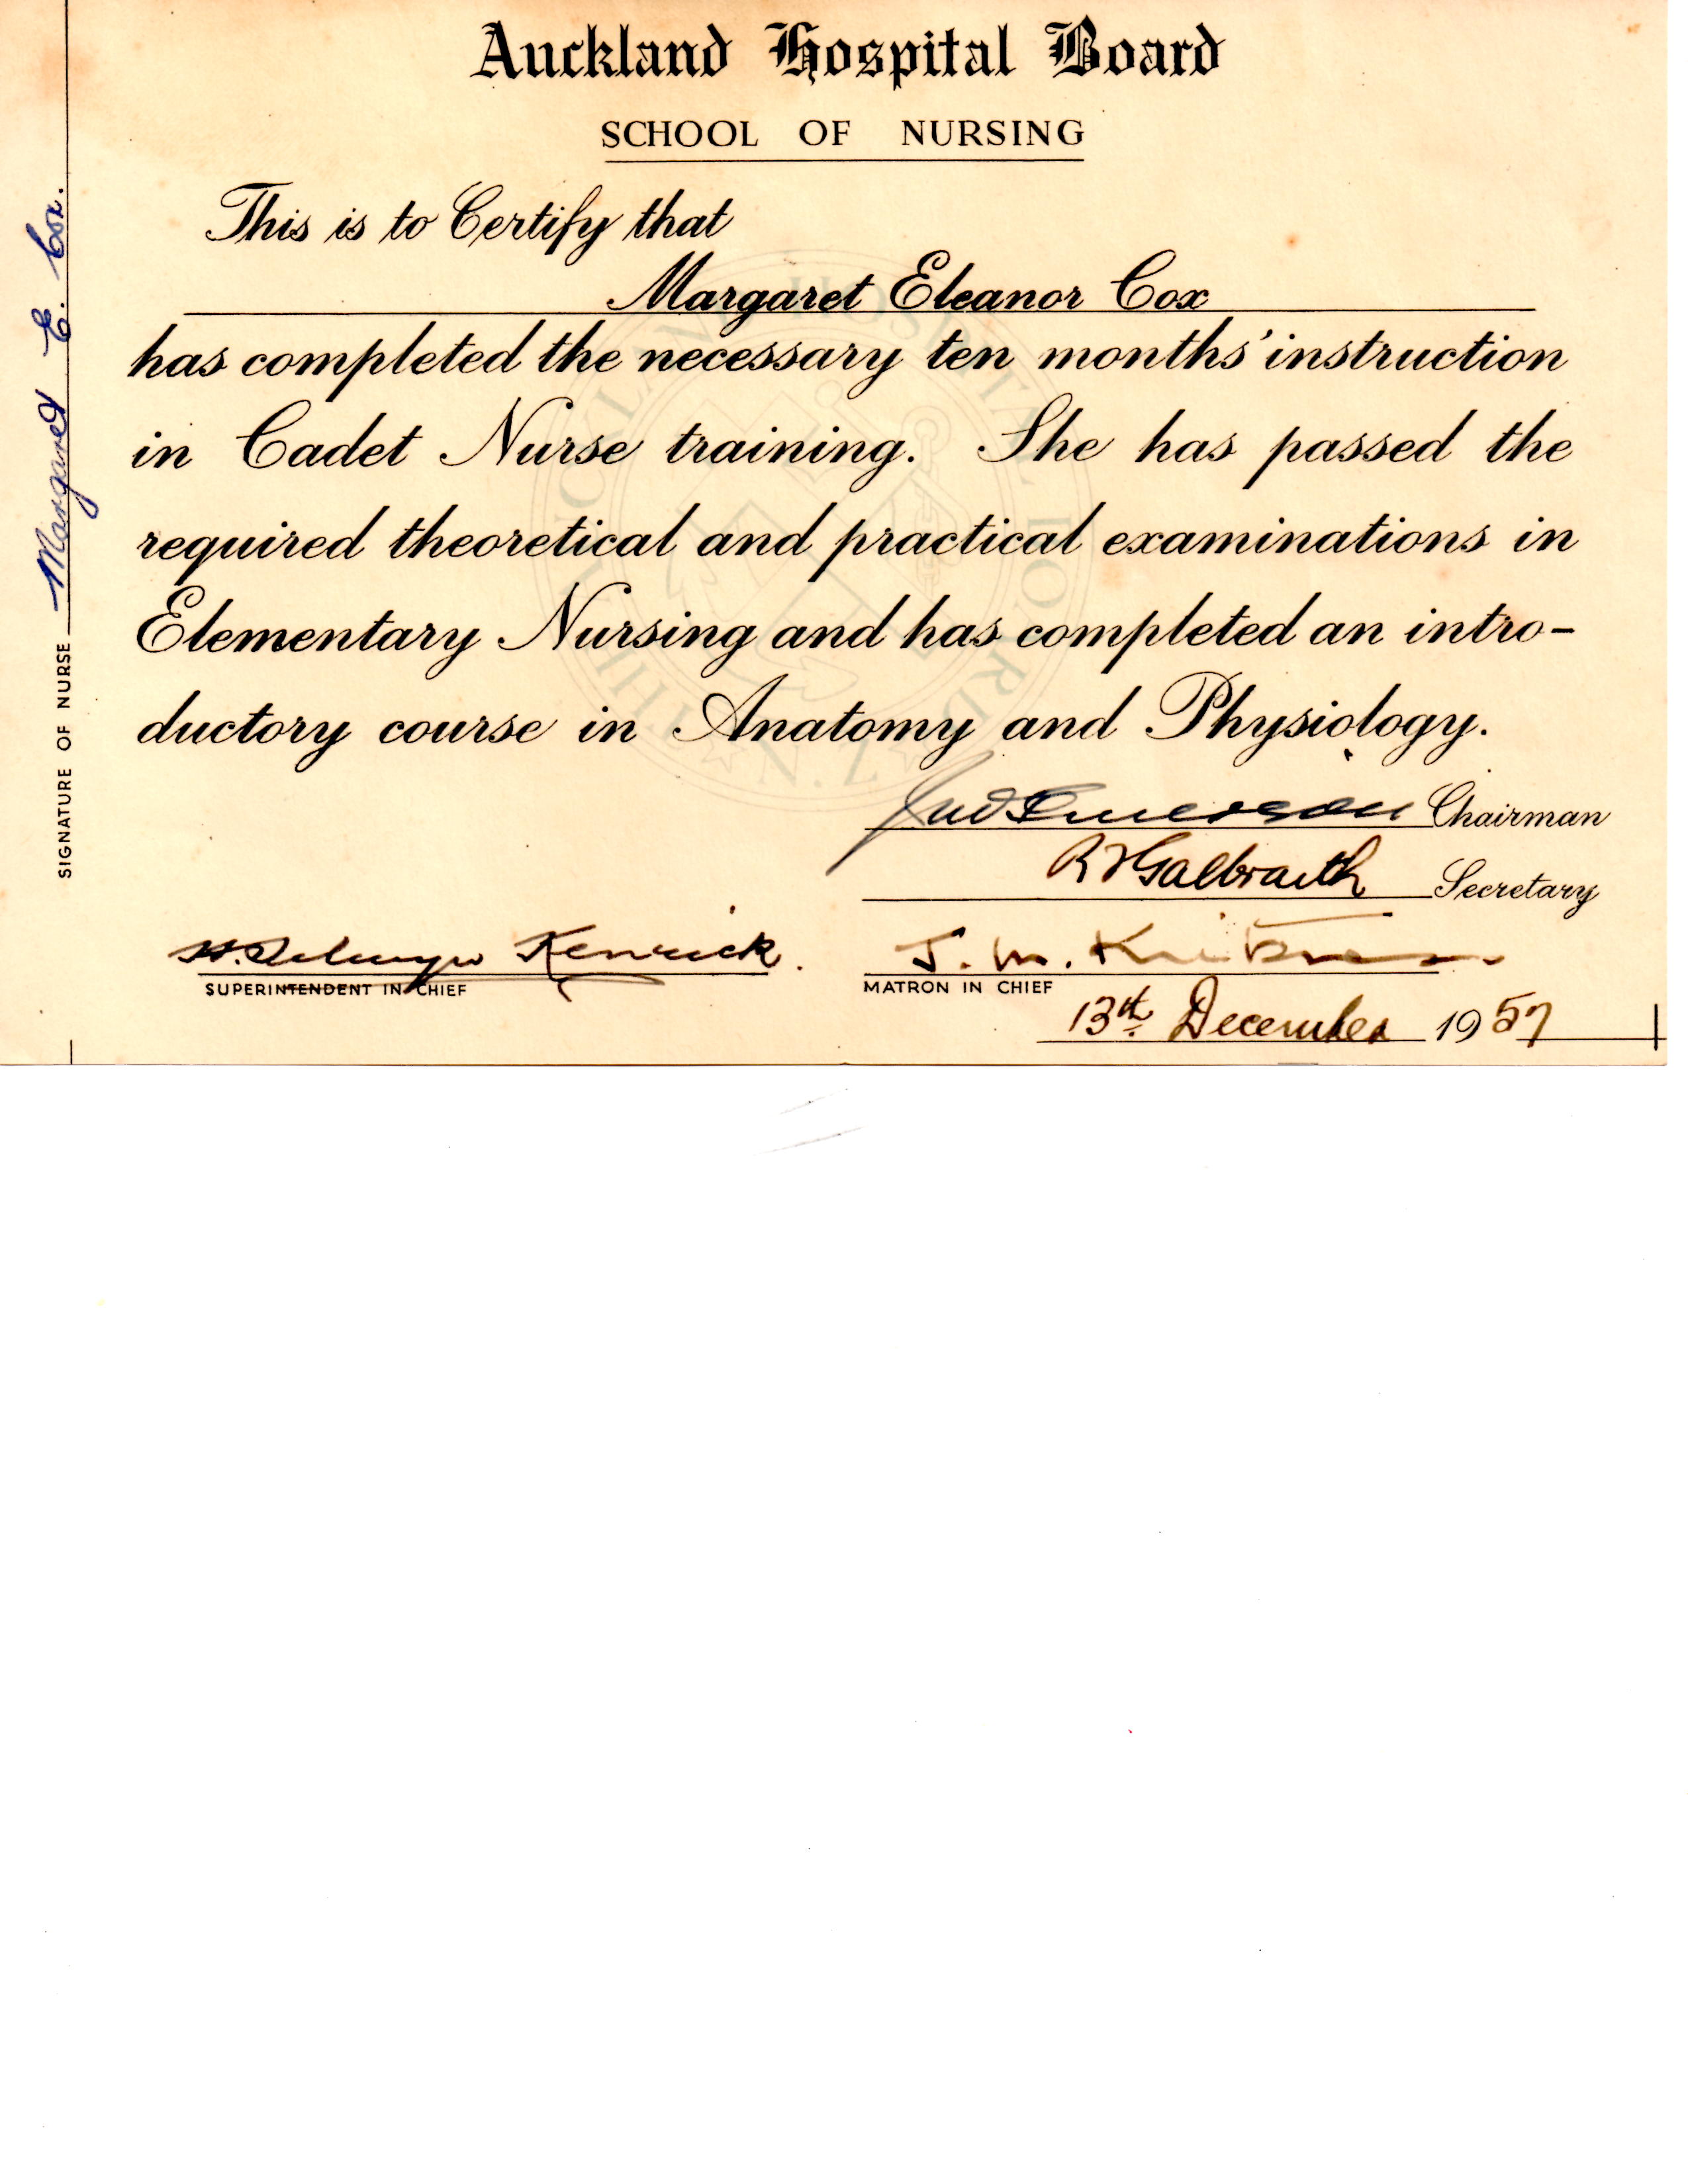 Auckland Hospital Board
SCHOOL OF NURSING
This is to Certify that
Margaret Eleanor Cox
has completed the necessary ten months' instruction
in Cadet Nurse training. She has passed the
required theoretical and practical examinations in
Elementary Nursing and has completed an intro-
ductory course in Anatomy and Physiology.
Chairman
Galbraith Secretary
Kenrick.
SUPERINTENDENT IN CHIEF
J. M.
MATRON IN CHIEF
13th December 1957
SIGNATURE OF NURSE Margaret E. Cox.
AUCKLAND HOSPITAL BOARD
N.Z.